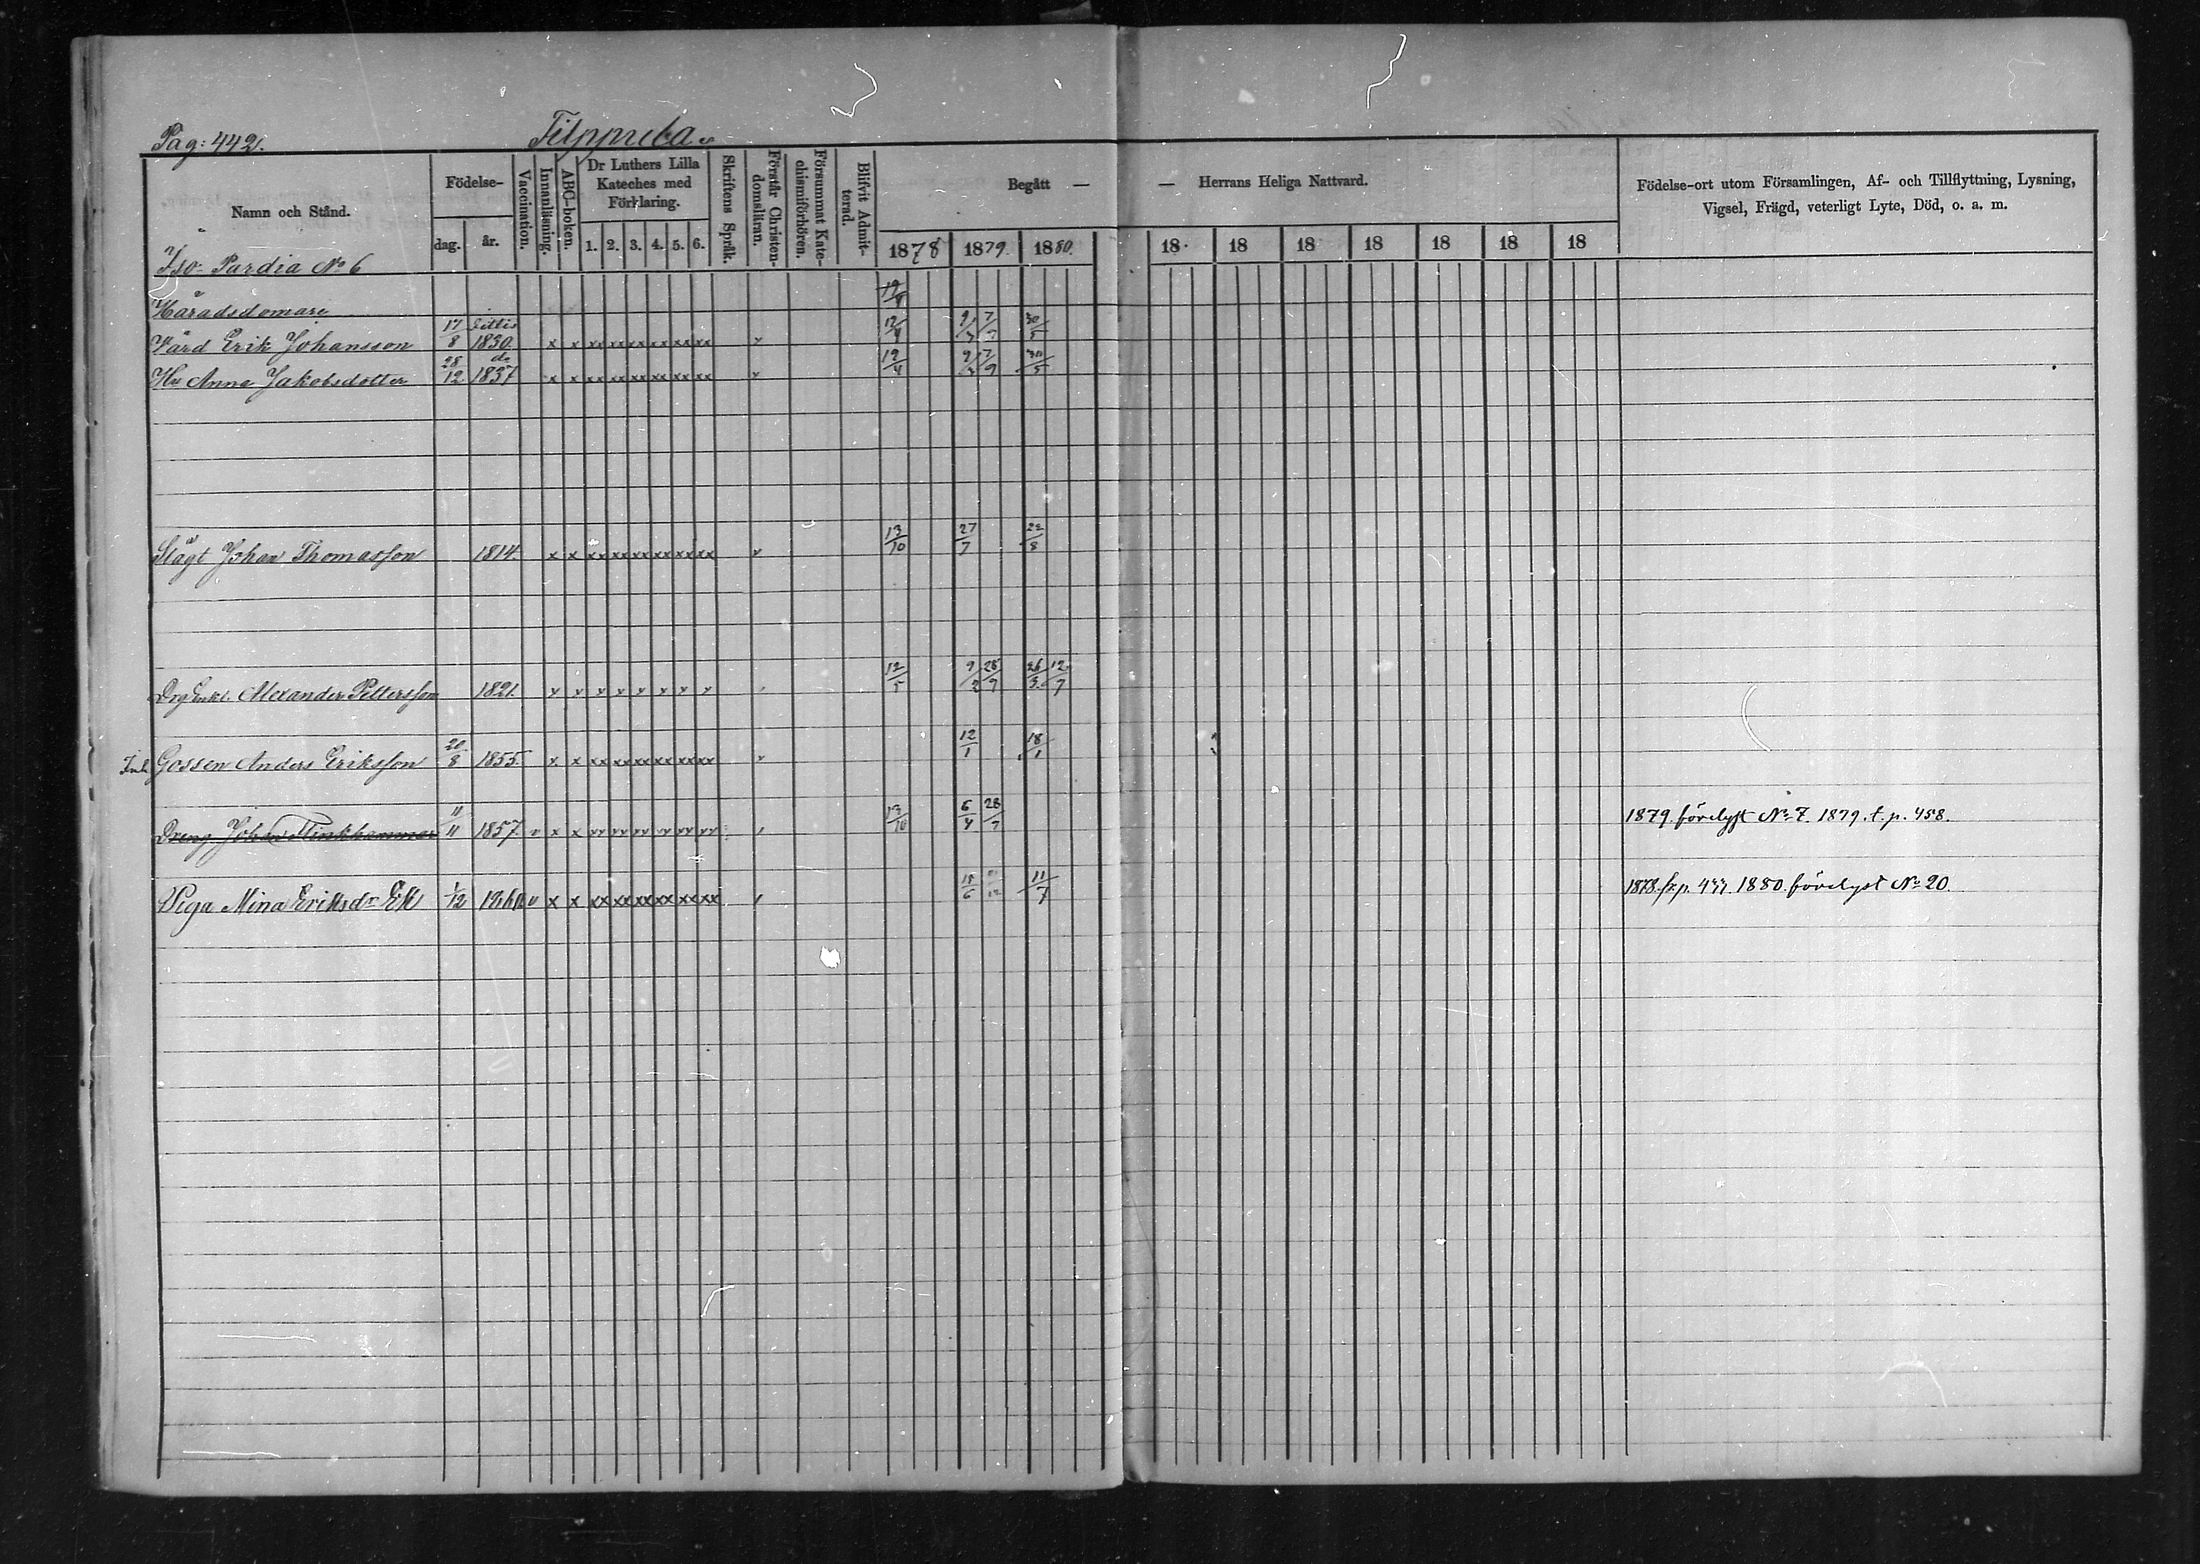 Pag: 442.
Filppula.
Namn och Stånd.
Födelse-
dag. år.
Vaccination.
Innanläsning.
ABC-boken.
Dr Luthers Lilla
Kateches med
Förklaring.
1. 2. 3. 4. 5. 6.
Skriftens Språk.
Förstår Christen-
domsläran.
Försummat Kate-
chismiförhören.
Blifvit Admit-
terad.
Begått — — Herrans Heliga Nattvard.
1878 1879. 1880. 18 18 18 18 18 18 18
Födelse-ort utom Församlingen, Af- och Tillflyttning, Lysning,
Vigsel, Frägd, veterligt Lyte, Död, o. a. m.
Iso-Pardia No 6
Häradsdomare
Värd Erik Johansson 17/8 1830. x x xx xx xx xx xx xx 12/4 9/2 7/9 30/5
Hu Anna Jakobsdotter 28/12 do 1837 x x xx xx xx xx xx xx 12/4 9/2 7/9 30/5
Slägt Johan Thomasson 1814. x x xx xx xx xx xx xx 13/10 27/7 22/8
Enkl. Alexander Pettersson 1821. 12/5 9/2 28/9 26/3 12/7
Inh Gossen Anders Eriksson 20/8 1855. x x xx xx xx xx xx xx 12/1 18/1
Dreng Johan Flinkhammar 11/11 1857 v x x 13/10 6/4 28/7 1879 förelyst No 7. 1879. t. p. 458.
Piga Mina Eriksdr Ek 1/12 1860 v x x xx xx xx xx xx xx 15/6 11/7 1878. fr p. 477. 1880. förelyst No 20.